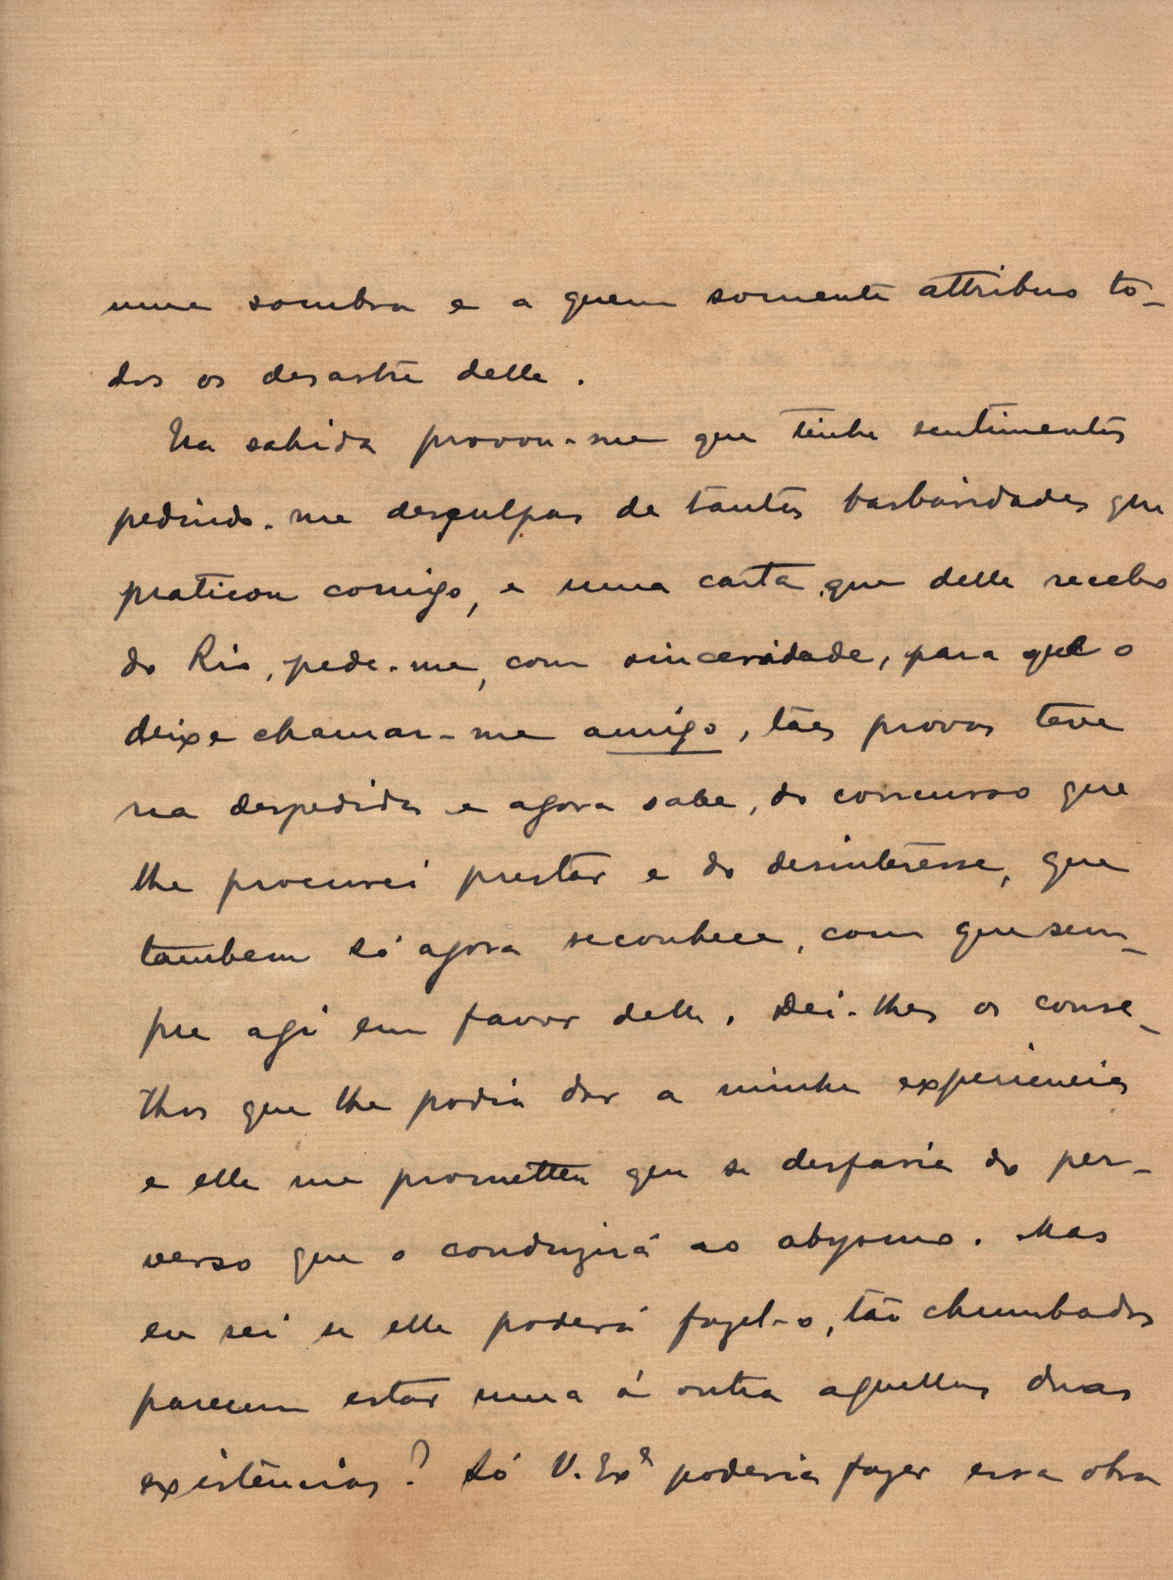 uma sombra e a quem somente attribuo to-
dos os desastre delle.
Na sahida provou-me que tinha sentimentos
pedindo-me desculpas de tantas barbaridades que
praticou comigo, e uma carta que delle recebo
do Rio, pede-me, com sinceridade, para que o
deixe chamar-me amigo, táes provas teve
na despedida e agora sabe, do concurso que
lhe procurei prestar e do desinteresse, que
tambem só agora reconhece, com que sem-
pre agi em favor delle. Dei-lhes os conse-
lhos que lhe podia dar a minha experiencia
e elle me prometteu que se desfaria do per-
verso que o conduzirá ao abysmo. Mas
eu sei se elle poderá fazel-o, tão chumbadas
parecem estar uma á outra aquellas duas
existências? Só V. Exª poderia fazer essa obra